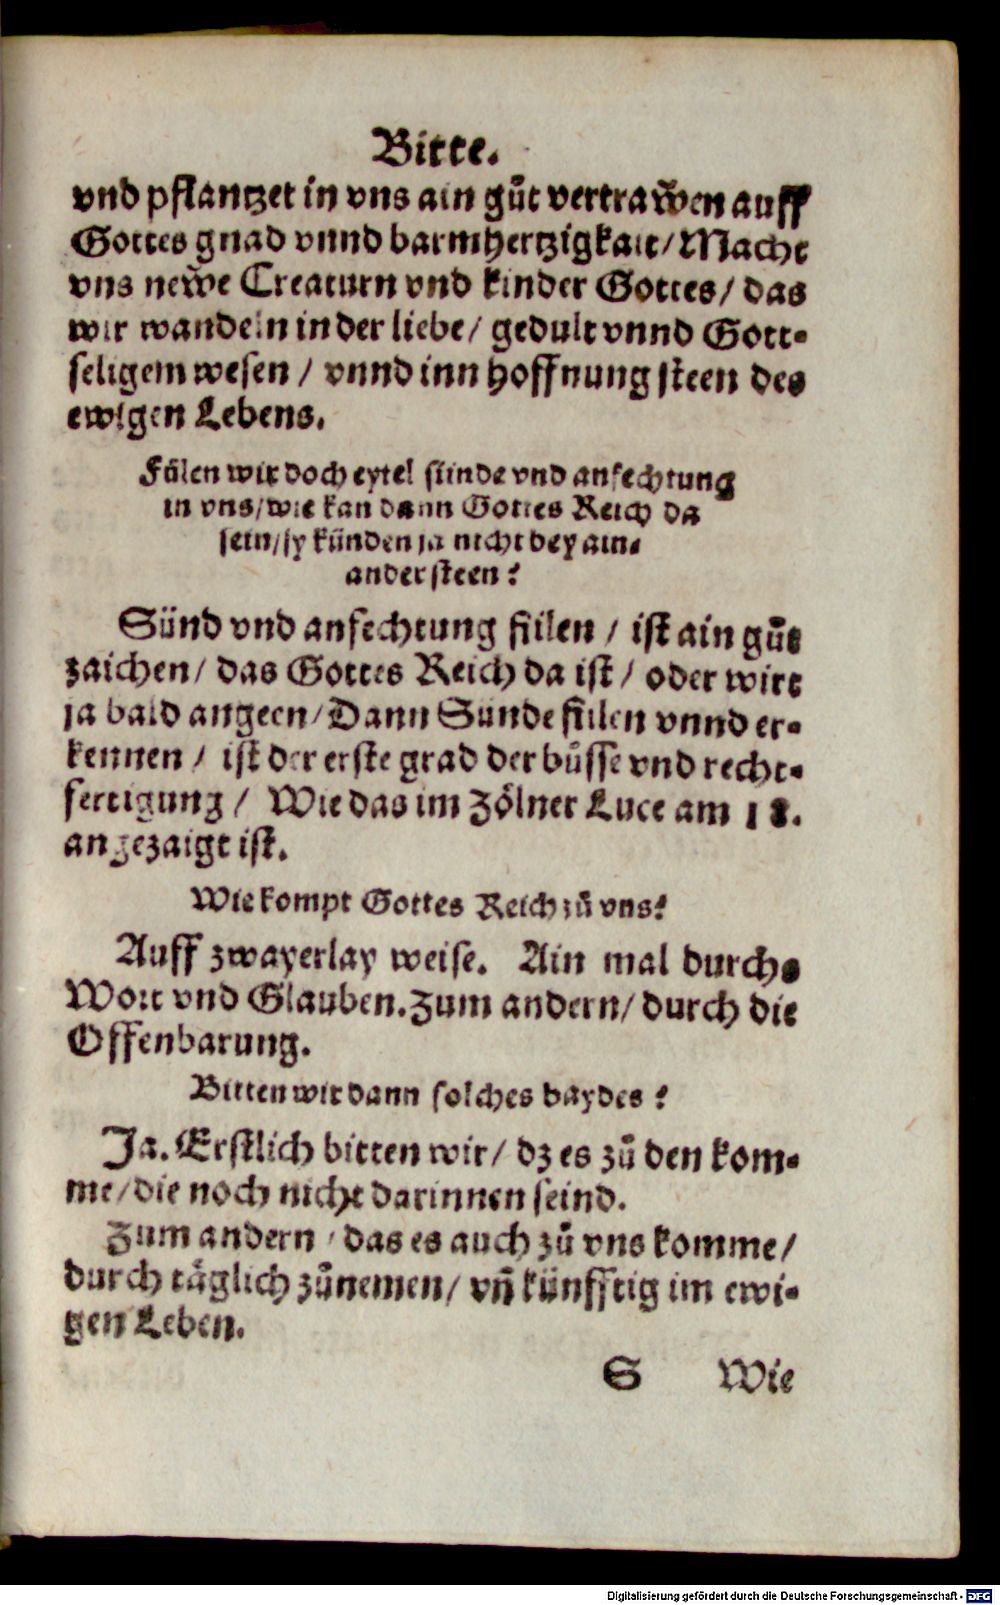 Bitte.
vnd pflantzet in vns ain gůt vertraw̌en auff
Gottes gnad vnnd barmhertzigkait/ Macht
vns new̌e Creaturn vnd kinder Gottes/ das
wir wandeln in der liebe/ gedult vnnd Gott-
seligem wesen / vnnd inn hoffnung steen des
ewigen Lebens.
Fülen wir doch eytel sünde vnd anfechtung
in vns/wie kan dann Gottes Reich da
sein/sy künden ja nicht bey ain-
ander steen?
Sünd vnd anfechtung fülen / ist ain gůts
zaichen/ das Gottes Reich da ist / oder wirt
ja bald angeen/Dann Sünde fülen vnnd er-
kennen / ist der erste grad der bůsse vnd recht-
fertigung / Wie das im Zölner Luce am 18.
angezaigt ist.
Wie kompt Gottes Reich zů vns?
Auff zwayerlay weise. Ain mal durchs
Wort vnd Glauben. Zum andern/ durch die
Offenbarung.
Bitten wir dann solches baydes?
Ja. Erstlich bitten wir/ dz es zů den kom-
me/die noch nicht darinnen seind.
Zum andern / das es auch zů vns komme/
durch täglich zůnemen/ vñ künfftig im ewi-
gen Leben.
S Wie
Digitalisierung gefördert durch die Deutsche Forschungsgemeinschaft - DFG